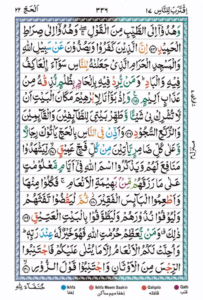 اِقْتَرَبَ لِلنَّاسِ ١٧
٣٣٩
اَلْحَجّ ٢٢
وَهُدُوْۤا اِلَى الطَّيِّبِ مِنَ الْقَوْلِ ۖۚ وَهُدُوْۤا اِلٰى صِرَاطِ
الْحَمِيْدِ ﴿۲۴﴾ اِنَّ الَّذِيْنَ كَفَرُوْا وَيَصُدُّوْنَ عَنْ سَبِيْلِ اللّٰهِ
وَالْمَسْجِدِ الْحَرَامِ الَّذِيْ جَعَلْنٰهُ لِلنَّاسِ سَوَآءَ ۨالْعَاكِفُ
فِيْهِ وَالْبَادِ ؕ وَمَنْ يُّرِدْ فِيْهِ بِاِلْحَادٍۭ بِظُلْمٍ نُّذِقْهُ مِنْ
عَذَابٍ اَلِيْمٍ ﴿۲۵﴾ وَاِذْ بَوَّاْنَا لِاِبْرٰهِيْمَ مَكَانَ الْبَيْتِ اَنْ
لَّا تُشْرِكْ بِيْ شَيْـًٔا وَّطَهِّرْ بَيْتِيَ لِلطَّآئِفِيْنَ وَالْقَآئِمِيْنَ
وَالرُّكَّعِ السُّجُوْدِ ﴿۲۶﴾ وَاَذِّنْ فِى النَّاسِ بِالْحَجِّ يَاْتُوْكَ رِجَالًا
وَّعَلٰى كُلِّ ضَامِرٍ يَّاْتِيْنَ مِنْ كُلِّ فَجٍّ عَمِيْقٍ ﴿۲۷﴾ لِّيَشْهَدُوْا
مَنَافِعَ لَهُمْ وَيَذْكُرُوا اسْمَ اللّٰهِ فِيْۤ اَيَّامٍ مَّعْلُوْمٰتٍ
عَلٰى مَا رَزَقَهُمْ مِّنْۢ بَهِيْمَةِ الْاَنْعَامِ ۚ فَكُلُوْا مِنْهَا
وَاَطْعِمُوا الْبَآئِسَ الْفَقِيْرَ ﴿۲۸﴾ ثُمَّ لْيَقْضُوْا تَفَثَهُمْ
وَلْيُوْفُوْا نُذُوْرَهُمْ وَلْيَطَّوَّفُوْا بِالْبَيْتِ الْعَتِيْقِ ﴿۲۹﴾
ذٰلِكَ ۗ وَمَنْ يُّعَظِّمْ حُرُمٰتِ اللّٰهِ فَهُوَ خَيْرٌ لَّهٗ عِنْدَ رَبِّهٖ ؕ
وَاُحِلَّتْ لَكُمُ الْاَنْعَامُ اِلَّا مَا يُتْلٰى عَلَيْكُمْ فَاجْتَنِبُوا
الرِّجْسَ مِنَ الْاَوْثَانِ وَاجْتَنِبُوْا قَوْلَ الزُّوْرِ ﴿۳۰﴾
Ikhfa
Ikhfa Meem Saakin
Qalqala
Qalb